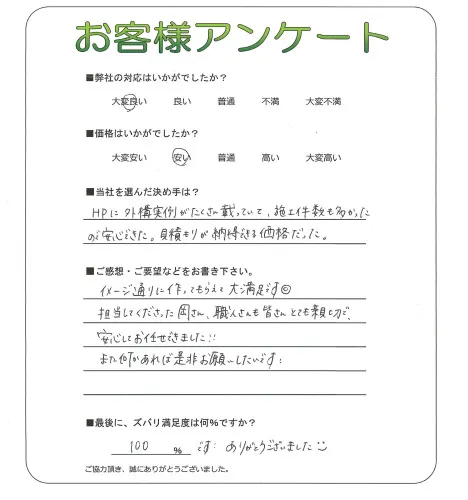 お客様アンケート
■弊社の対応はいかがでしたか？
大変良い 良い 普通 不満 大変不満
■価格はいかがでしたか？
大変安い 安い 普通 高い 大変高い
■当社を選んだ決め手は？
HPに外構実例がたくさん載っていて、施工件数も多かった
ので安心できた。見積もりが納得できる価格だった。
■ご感想・ご要望などをお書き下さい。
イメージ通りに作ってもらえて大満足です☺
担当してくださった岡さん、職人さんも皆さんとても親切で、
安心してお任せできました!!
また何かあれば是非お願いしたいです:
■最後に、ズバリ満足度は何％ですか？
100 % です: ありがとうございました☺
ご協力頂き、誠にありがとうございました。